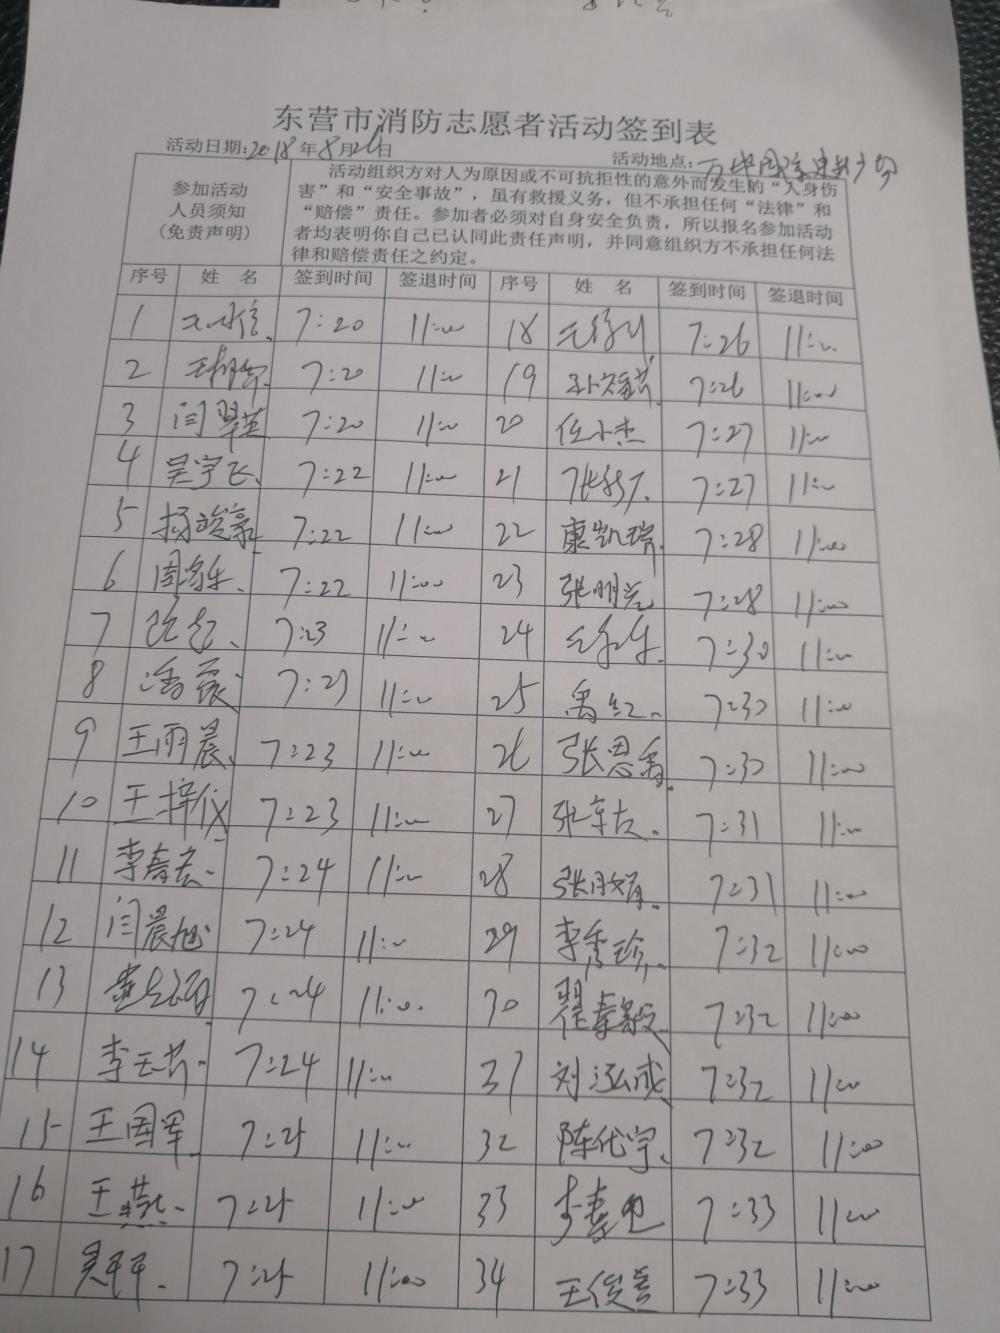 东营市消防志愿者活动签到表
活动日期:2018年8月26日 活动地点:
参加活动
人员须知
(免责声明)
活动组织方对人为原因或不可抗拒性的意外而发生的“人身伤
害”和“安全事故”,虽有救援义务,但不承担任何“法律”和
“赔偿”责任。参加者必须对自身安全负责,所以报名参加活动
者均表明你自己已认同此责任声明,并同意组织方不承担任何法
律和赔偿责任之约定。
序号 姓 名 签到时间 签退时间 序号 姓 名 签到时间 签退时间
1 7:20 11:00 18 7:26 11:00
2 7:20 11:00 19 7:26 11:00
3 闫翠英 7:20 11:00 20 任小杰 7:27 11:00
4 吴宇飞 7:22 11:00 21 7:27 11:00
5 杨竣豪 7:22 11:00 22 康凯瑞 7:28 11:00
6 周家乐 7:22 11:00 23 张明亮 7:28 11:00
7 7:23 11:00 24 7:30 11:00
8 潘薇 7:23 11:00 25 禹红 7:30 11:00
9 王雨晨 7:23 11:00 26 张恩 7:30 11:00
10 王梓仪 7:23 11:00 27 7:31 11:00
11 李春 7:24 11:00 28 张 7:31 11:00
12 闫晨旭 7:24 11:00 29 李秀珍 7:32 11:00
13 7:24 11:00 30 翟 7:32 11:00
14 李玉芳 7:24 11:00 31 刘泓成 7:32 11:00
15 王国军 7:25 11:00 32 陈代宇 7:32 11:00
16 王燕 7:25 11:00 33 李 7:33 11:00
17 吴平平 7:25 11:00 34 王俊 7:33 11:00